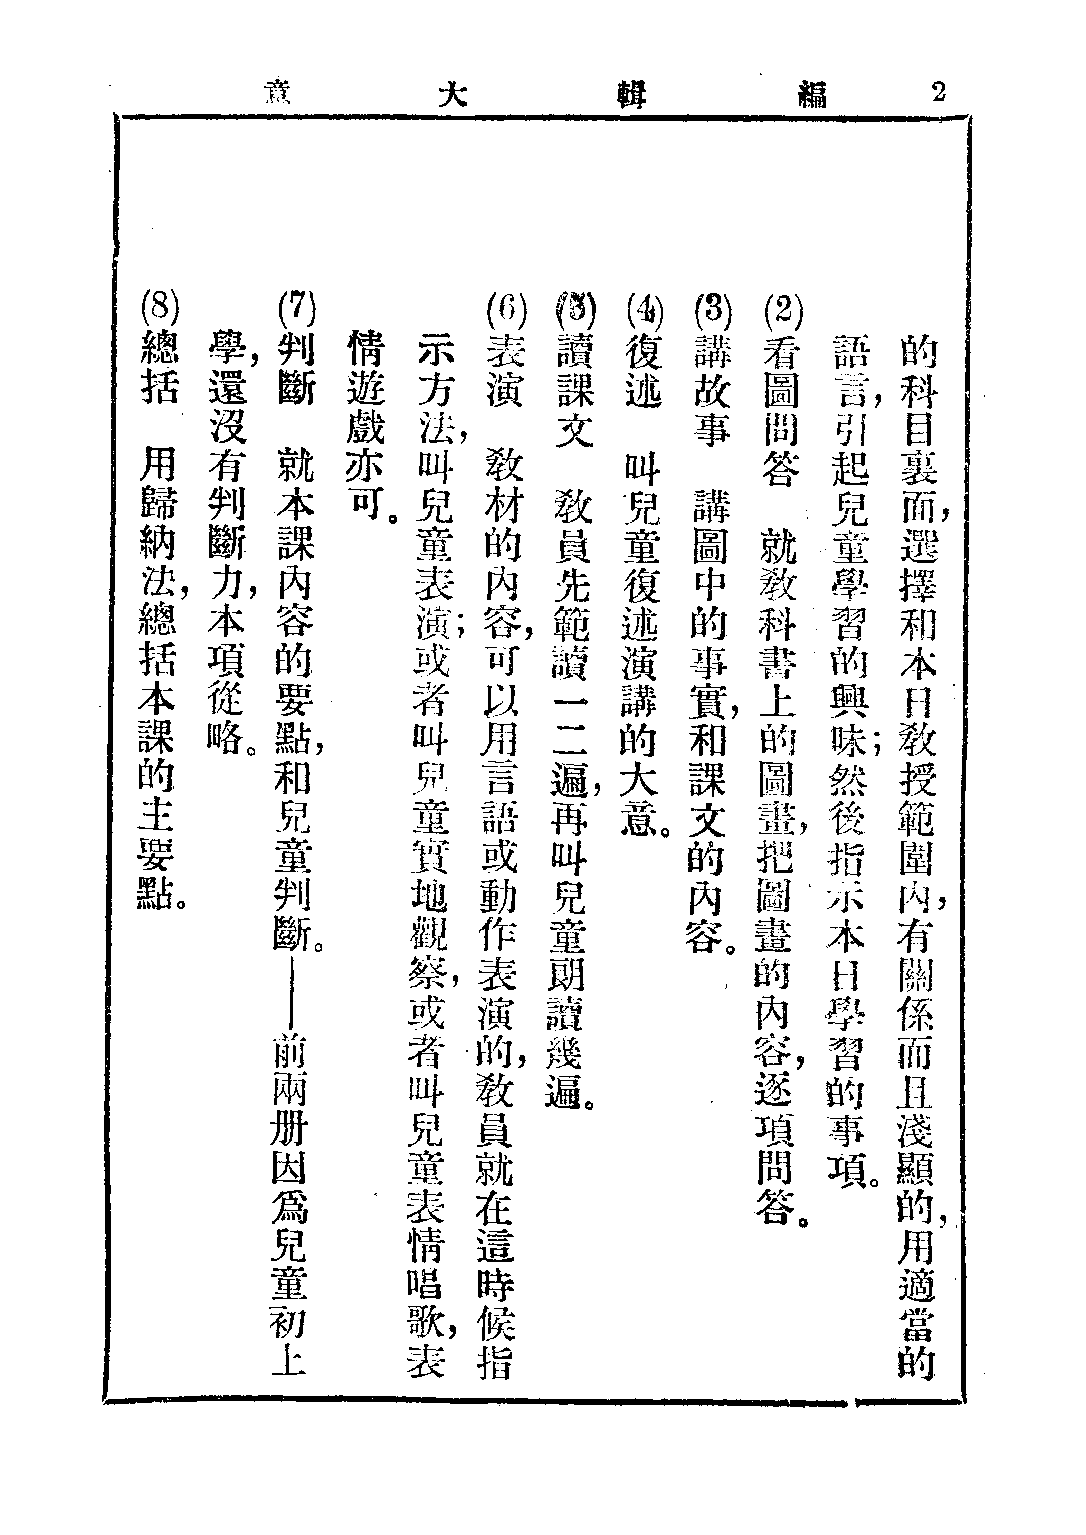 2 編輯大意
的科目裏面，選擇和本日教授範圍內，有關係而且淺顯的，用適當的
語言，引起兒童學習的興味；然後指示本日學習的事項。
(2)看圖問答　就教科書上的圖畫，把圖畫的內容，逐項問答。
(3)講故事　講圖中的事實，和課文的內容。
(4)復述　叫兒童復述演講的大意。
(5)讀課文　教員先範讀一二遍，再叫兒童朗讀幾遍。
(6)表演　教材的內容，可以用言語或動作表演的，教員就在這時候指
示方法，叫兒童表演；或者叫兒童實地觀察，或者叫兒童表情唱歌，表
情遊戲亦可。
(7)判斷　就本課內容的要點，和兒童判斷。——前兩册因爲兒童初上
學，還沒有判斷力，本項從略。
(8)總括　用歸納法，總括本課的主要點。